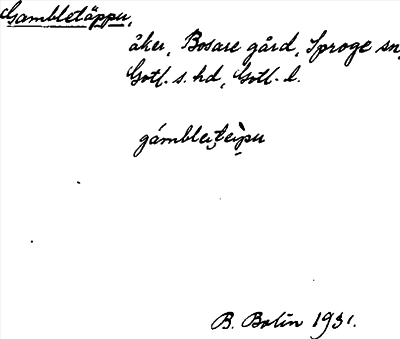 Gambletäppu,
åker, Bosare gård, Sproge sn,
Gotl. s. hd, Gotl. l.
gámbleiteìpu
B. Bolin 1931.